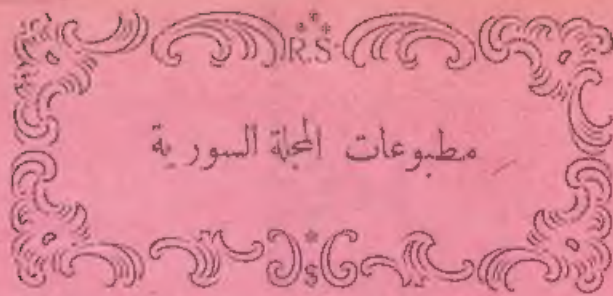 R.S
مطبوعات المجلة السورية
S